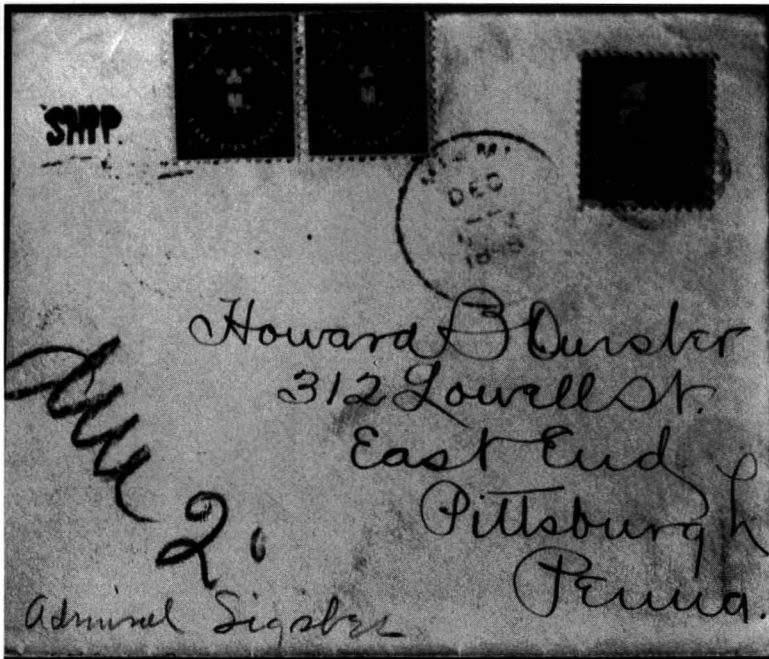 SHIP.
DEC
1898
Howard B Dursler
312 Lowell St.
East End
Pittsburgh
Penna.
Due 2.
Admiral Sigsbee